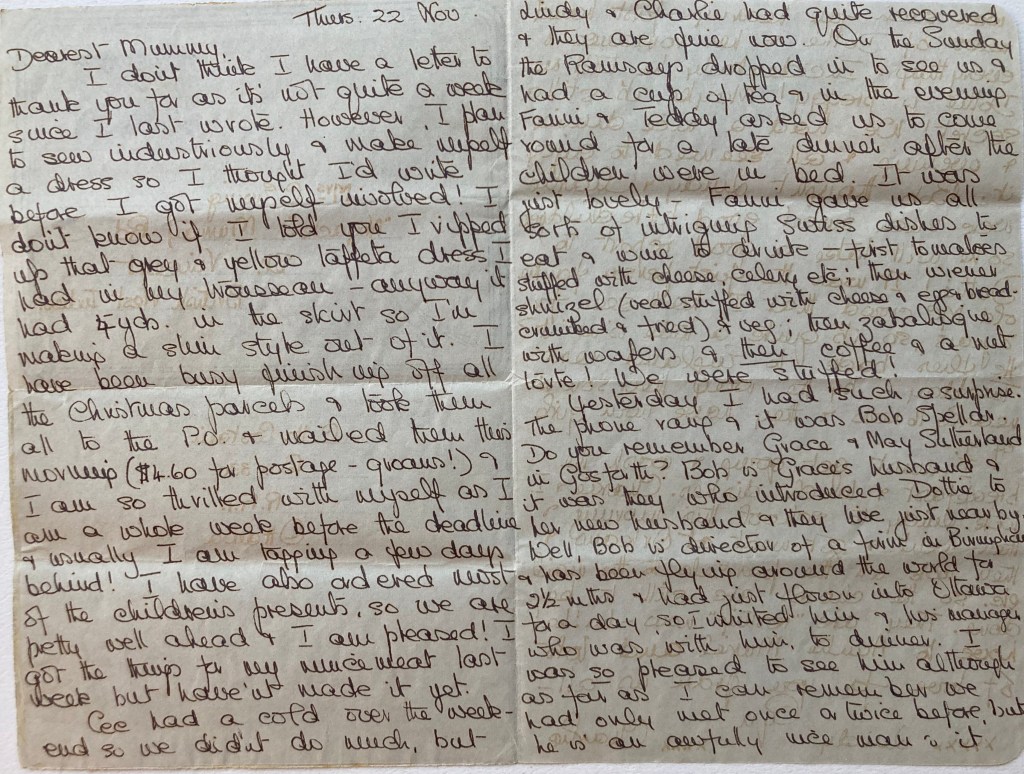 Thurs. 22 Nov.
Dearest Mummy,
I don't think I have a letter to
thank you for as it's not quite a week
since I last wrote. However, I plan
to sew industriously & make myself
a dress so I thought I'd write
before I got myself involved! I
don't know if I told you I ripped
up that grey & yellow taffeta dress I
had in my trousseau - anyway it
had 4 yds. in the skirt so I'm
making a slim style out of it. I
have been busy finishing off all
the Christmas parcels & took them
all to the P.O. & mailed them this
morning ($4.60 for postage - groans!) &
I am so thrilled with myself as I
am a whole week before the deadline
& usually I am lagging a few days
behind! I have also ordered most
of the children's presents, so we are
pretty well ahead & I am pleased! I
got the things for my mincemeat last
week but have'nt made it yet.
Cec had a cold over the week-
end so we didn't do much, but
Lindy & Charlie had quite recovered
& they are fine now. On the Sunday
the Ramsays dropped in to see us &
had a cup of tea & in the evening
Fanni & Teddy asked us to come
round for a late dinner after the
children were in bed. It was
just lovely - Fanni gave us all
sorts of intriguing Swiss dishes to
eat & wine to drink - first tomatoes
stuffed with cheese, celery etc; then wiener
shnitzel (veal stuffed with cheese & egg & bread-
crumbed & fried) & veg; then zabalique
with wafers & then coffee & a nut
torte! We were stuffed!
Yesterday I had such a surprise.
The phone rang & it was Bob
Do you remember Grace & May Sutherland
in Gosforth? Bob is Grace's husband &
it was they who introduced Dottie to
her new husband & they live just nearby.
Well, Bob is director of a firm in Birmingham
& has been flying around the world for
2½ mths & had just flown into Ottawa
for a day, so I invited him & his manager
who was with him, to dinner. I
was so pleased to see him although
as far as I can remember we
had only met once or twice before, but
he is an awfully nice man & it